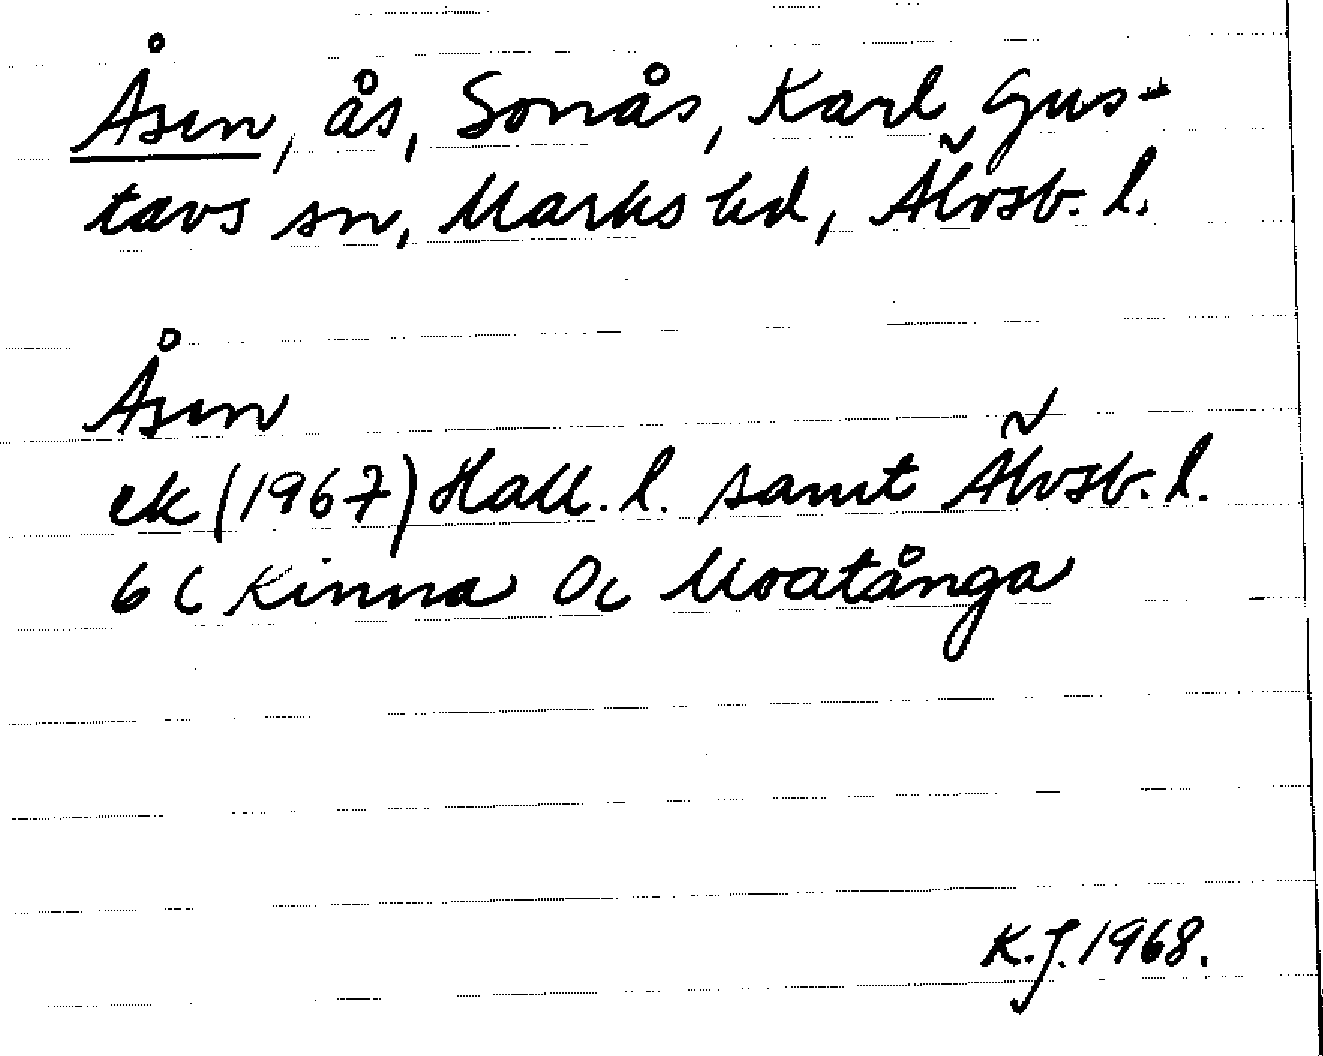 Åsen, ås, Sonås, Karl Gus-
tavs sn, Marks hd, Älvsb. l.
Åsen
ek (1967) Hall. l. samt Älvsb. l.
6 C Kinna 0c Moatånga
K.J. 1968.